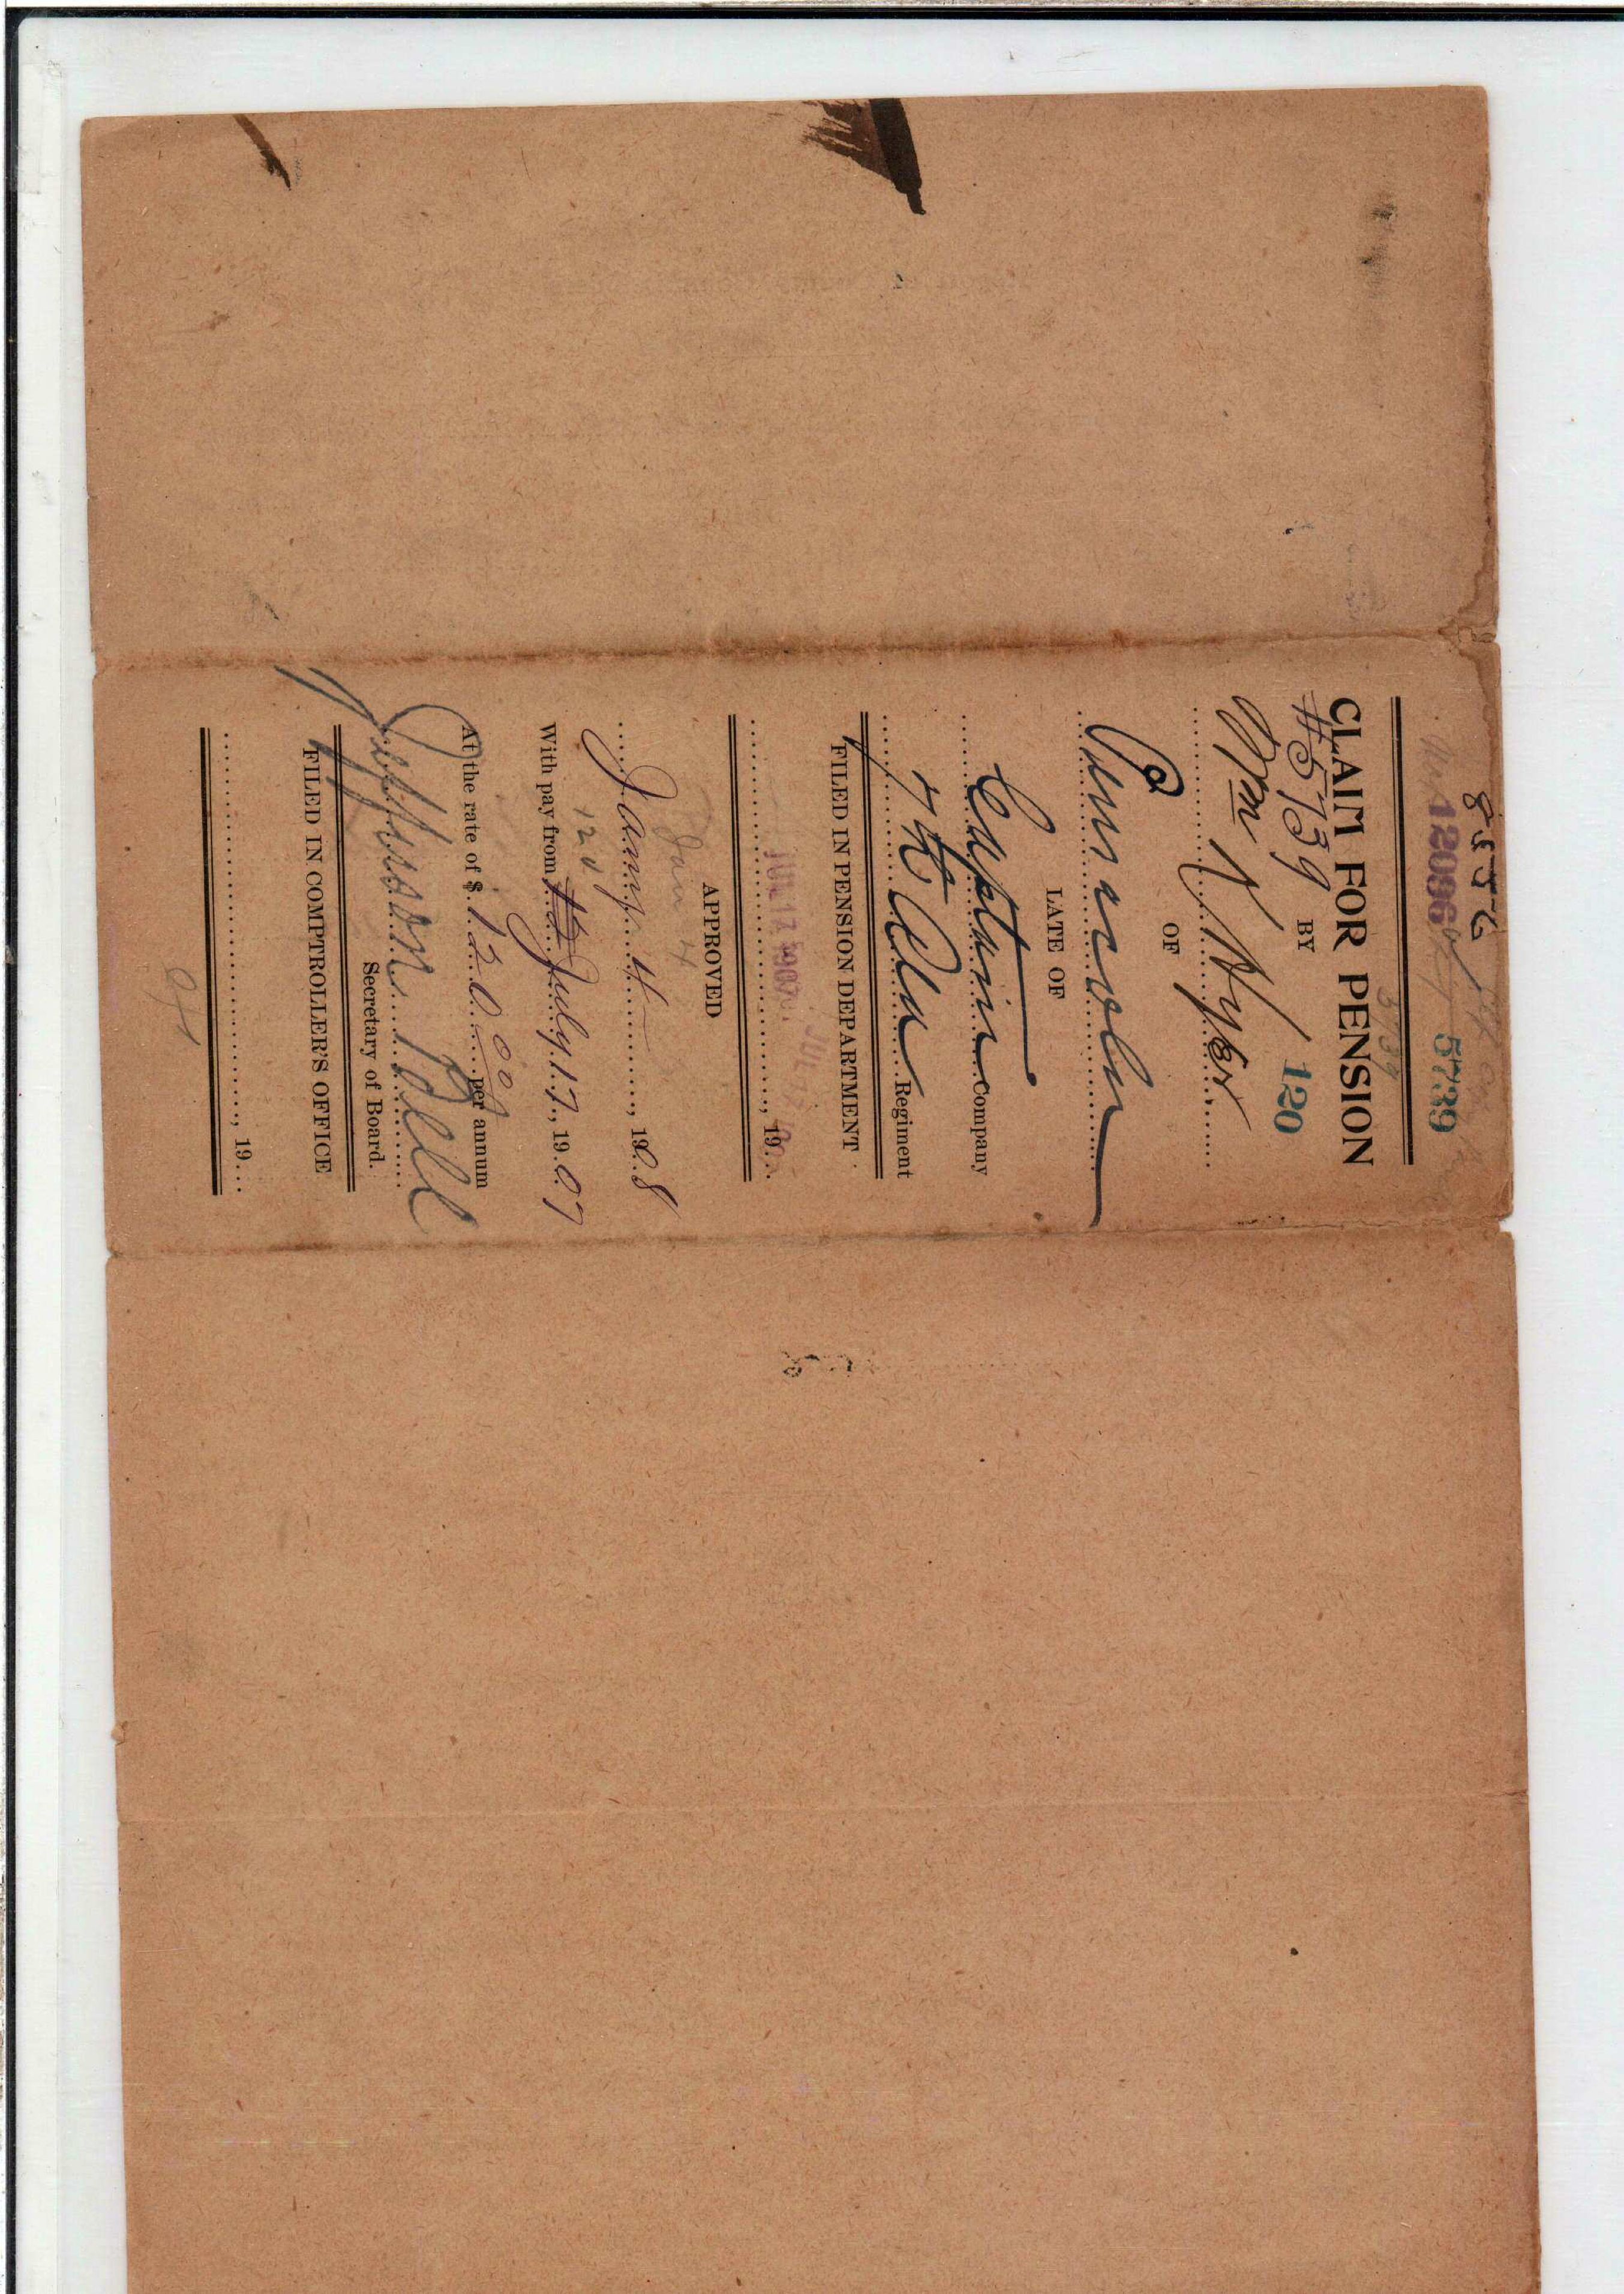 8556
12086 5739
5739
CLAIM FOR PENSION
#5739 BY 120
Wm K Hyer
OF
Pensacola
LATE OF
Captain Company
7th Ala Regiment
FILED IN PENSION DEPARTMENT
JUL 17 1907 , 19
APPROVED
Jan 4
Jany 4 , 1908
120
With pay from July 17, 1907
At the rate of $ 120 00 per annum
Jefferson Bell
Secretary of Board.
FILED IN COMPTROLLER'S OFFICE
, 19